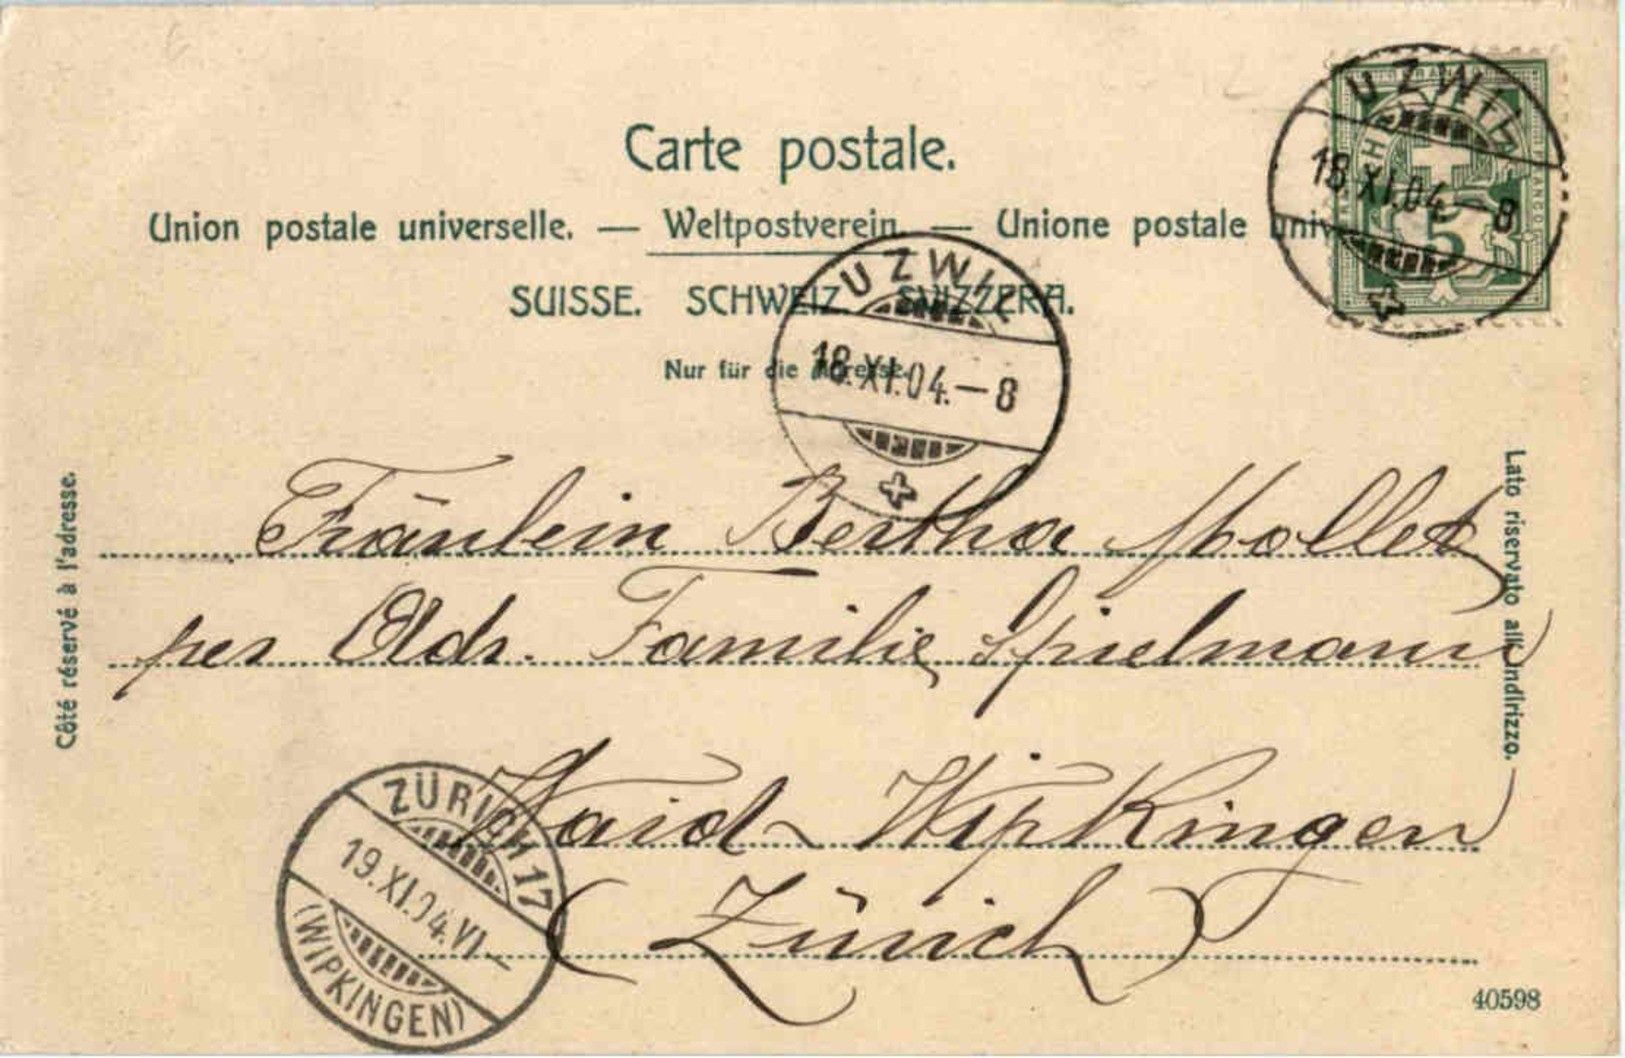 Carte postale.
Union postale universelle. — Weltpostverein. — Unione postale univ
SUISSE. SCHWEIZ. SVIZZERA.
Nur für die Adresse.
UZWIL
18.XI.04.—8
5
FRANCO
UZWIL
18.XI.04.—8
Côté réservé à l'adresse.
Lato riservato all'indirizzo.
Fräulein Bertha Mollet
per Adr. Familie Spielmann
Waid - Wipkingen
(Zürich)
ZÜRICH 17
19.XI.04.VI—
(WIPKINGEN)
40598